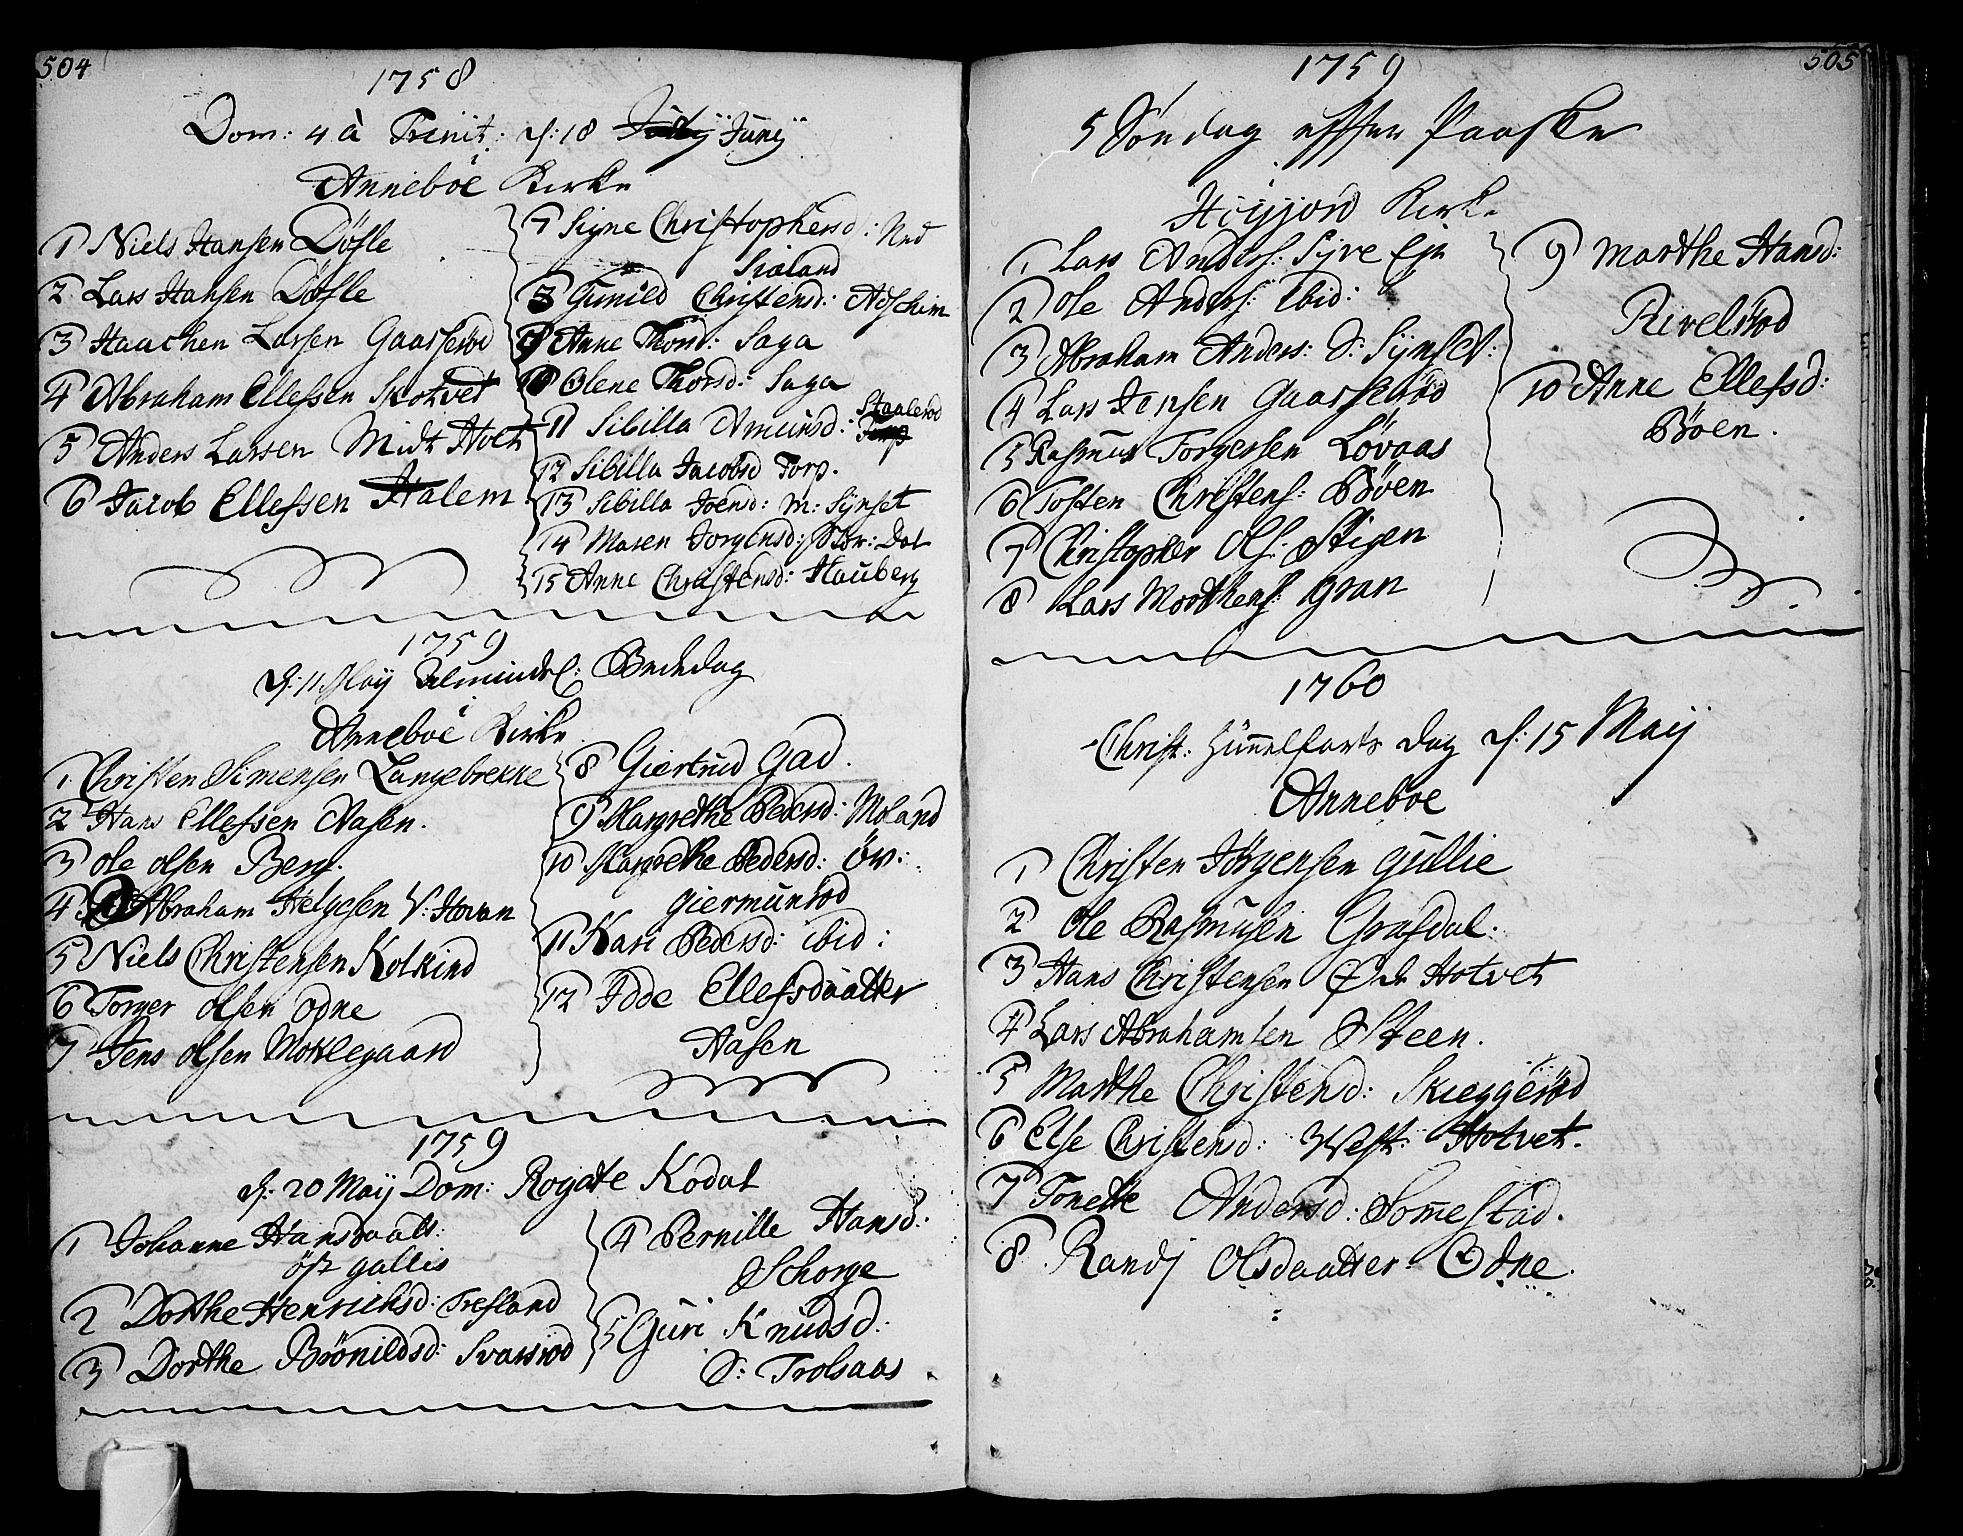 504
1758
Dom: 4 à Trinit: d: 18 Junij
Anneböe Kirke
1 Niels Hansen Döfle
2 Lars Hansen Döfle
3 Haachen Larsen Gaasserød
4 Abraham Ellefsen Skotvet
5 Anders Larsen Midt Holt
6 Jacob Ellefsen Halem
7 Signe Christophersd: Ned
Sialand
8 Gunild Christensd: Adscheim
9 Anne Thorsd: Saga
10 Olene Thorsd: Saga
11 Sibilla Amunsd: Staalerød
12 Sibilla Jacobsd Torp.
13 Sibilla Joensd: M: Sÿnset
14 Maren Jorgensd: Stor: Dal
15 Anne Christensd: Hauberg
1759
d: 11 Maij Almindel: Bededag
i
Anneboe Kirke
1 Christen Simensen Langebrekke
2 Hans Ellefsen Aasen.
3 Ole Olsen Berg.
4 Abraham Helgesen V: Hovan
5 Niels Christensen Kolkind
6 Torger Olsen Odne
7 Jens Olsen Moklegaard
8 Giertrud Gad.
9 Margrethe Pedersd: Moland
10 Margrethe Pedersd: Öv:
Giermundrød
11 Kari Pedersd: ibid:
12 Idde Ellefsdaatter
Aasen
1759
d: 20 Maij Dom: Rogate Kodal
1 Johanne Hansdaatt:
öst gallis
2 Dorthe Henrichsd: Trefland
3 Dorthe Brönildsd: Svarsrød
4 Pernille Hansd:
Schorge
5 Guri Knudsd:
S: Trolsaas
505
1759
5 Søndag effter Paaske
Höyjord Kirke
1 Lars Anders: Syre Eje
2 Ole Anders: ibid:
3 Abraham Anders: S: Sÿnset:
4 Lars Jensen Gaasserød
5 Rasmus Torgersen Lövaas
6 Tosten Christens: Böen
7 Christopher Ols: Stigen
8 Lars Morthens: Gran
9 Marthe Hansd:
Rivelsrød
10 Anne Ellefsd:
Böen.
1760
Christ: Himmelfarts Dag d: 15 Maij
Anneboe
1 Christen Jörgensen Gullie
2 Ole Rasmusen Grafdal.
3 Hans Christensen Ødr Holvet
4 Lars Abrahamsen Steen.
5 Marthe Christensd: Skieggerød
6 Else Christensd: West: Holvet.
7 Tonette Andersd: Somestad.
8 Randj Olsdaatter Odne.